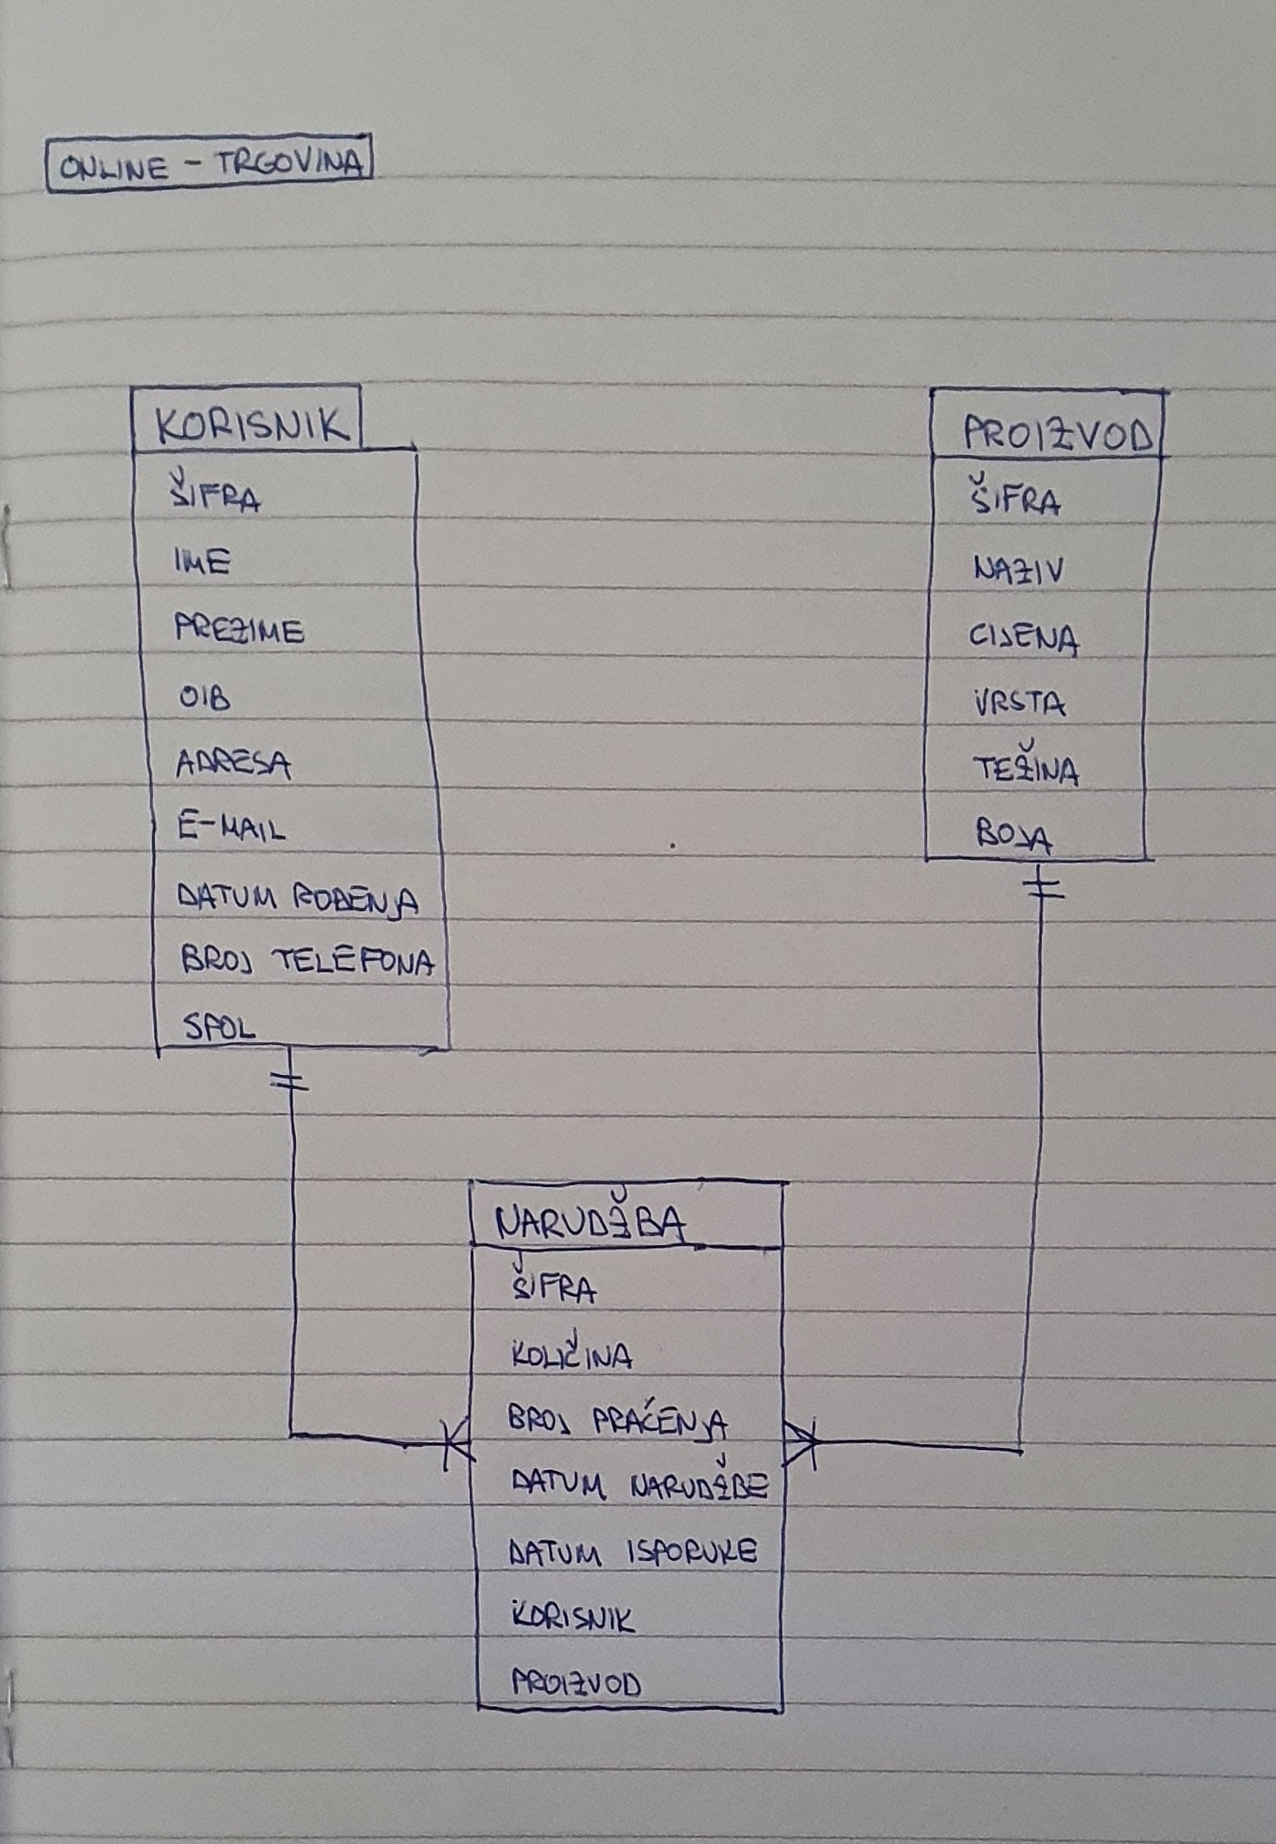 ONLINE - TRGOVINA
KORISNIK
ŠIFRA
IME
PREZIME
OIB
ADRESA
E-MAIL
DATUM ROĐENJA
BROJ TELEFONA
SPOL
PROIZVOD
ŠIFRA
NAZIV
CIJENA
VRSTA
TEŽINA
BOJA
NARUDŽBA
ŠIFRA
KOLIČINA
BROJ PRAĆENJA
DATUM NARUDŽBE
DATUM ISPORUKE
KORISNIK
PROIZVOD